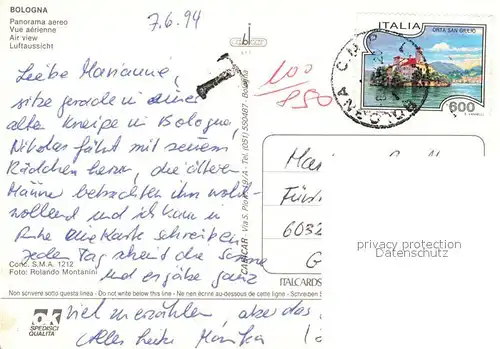 BOLOGNA
Panorama aereo
Vue aérienne
Air view
Luftaussicht
7.6.94
Liebe Marianne,
sitze gerade in einer
alten Kneipe in Bologna,
Nikolas fährt mit seinem
Rädchen herum, die älteren
Männer betrachten ihn wohl-
wollend und ich kann in
Ruhe die Karte schreiben.
jeden Tag scheint die Sonne
und es gäbe ganz
viel zu erzählen, aber das
Alles Liebe Monika
Conc. S.M.A. 1212
Foto: Rolando Montanini
Non scrivere sotto questa linea - Do not write below this line - Ne rien écrire au-dessous de cette ligne - Schreiben
SPEDISCI
QUALITÀ
CARICAR - Via S. Pio V, 19/A - Tel. (051) 550497 - Bologna
100
850
ITALIA
ORTA SAN GIULIO
600
Mar
Für
6032
G
ITALCARDS
privacy protection
Datenschutz